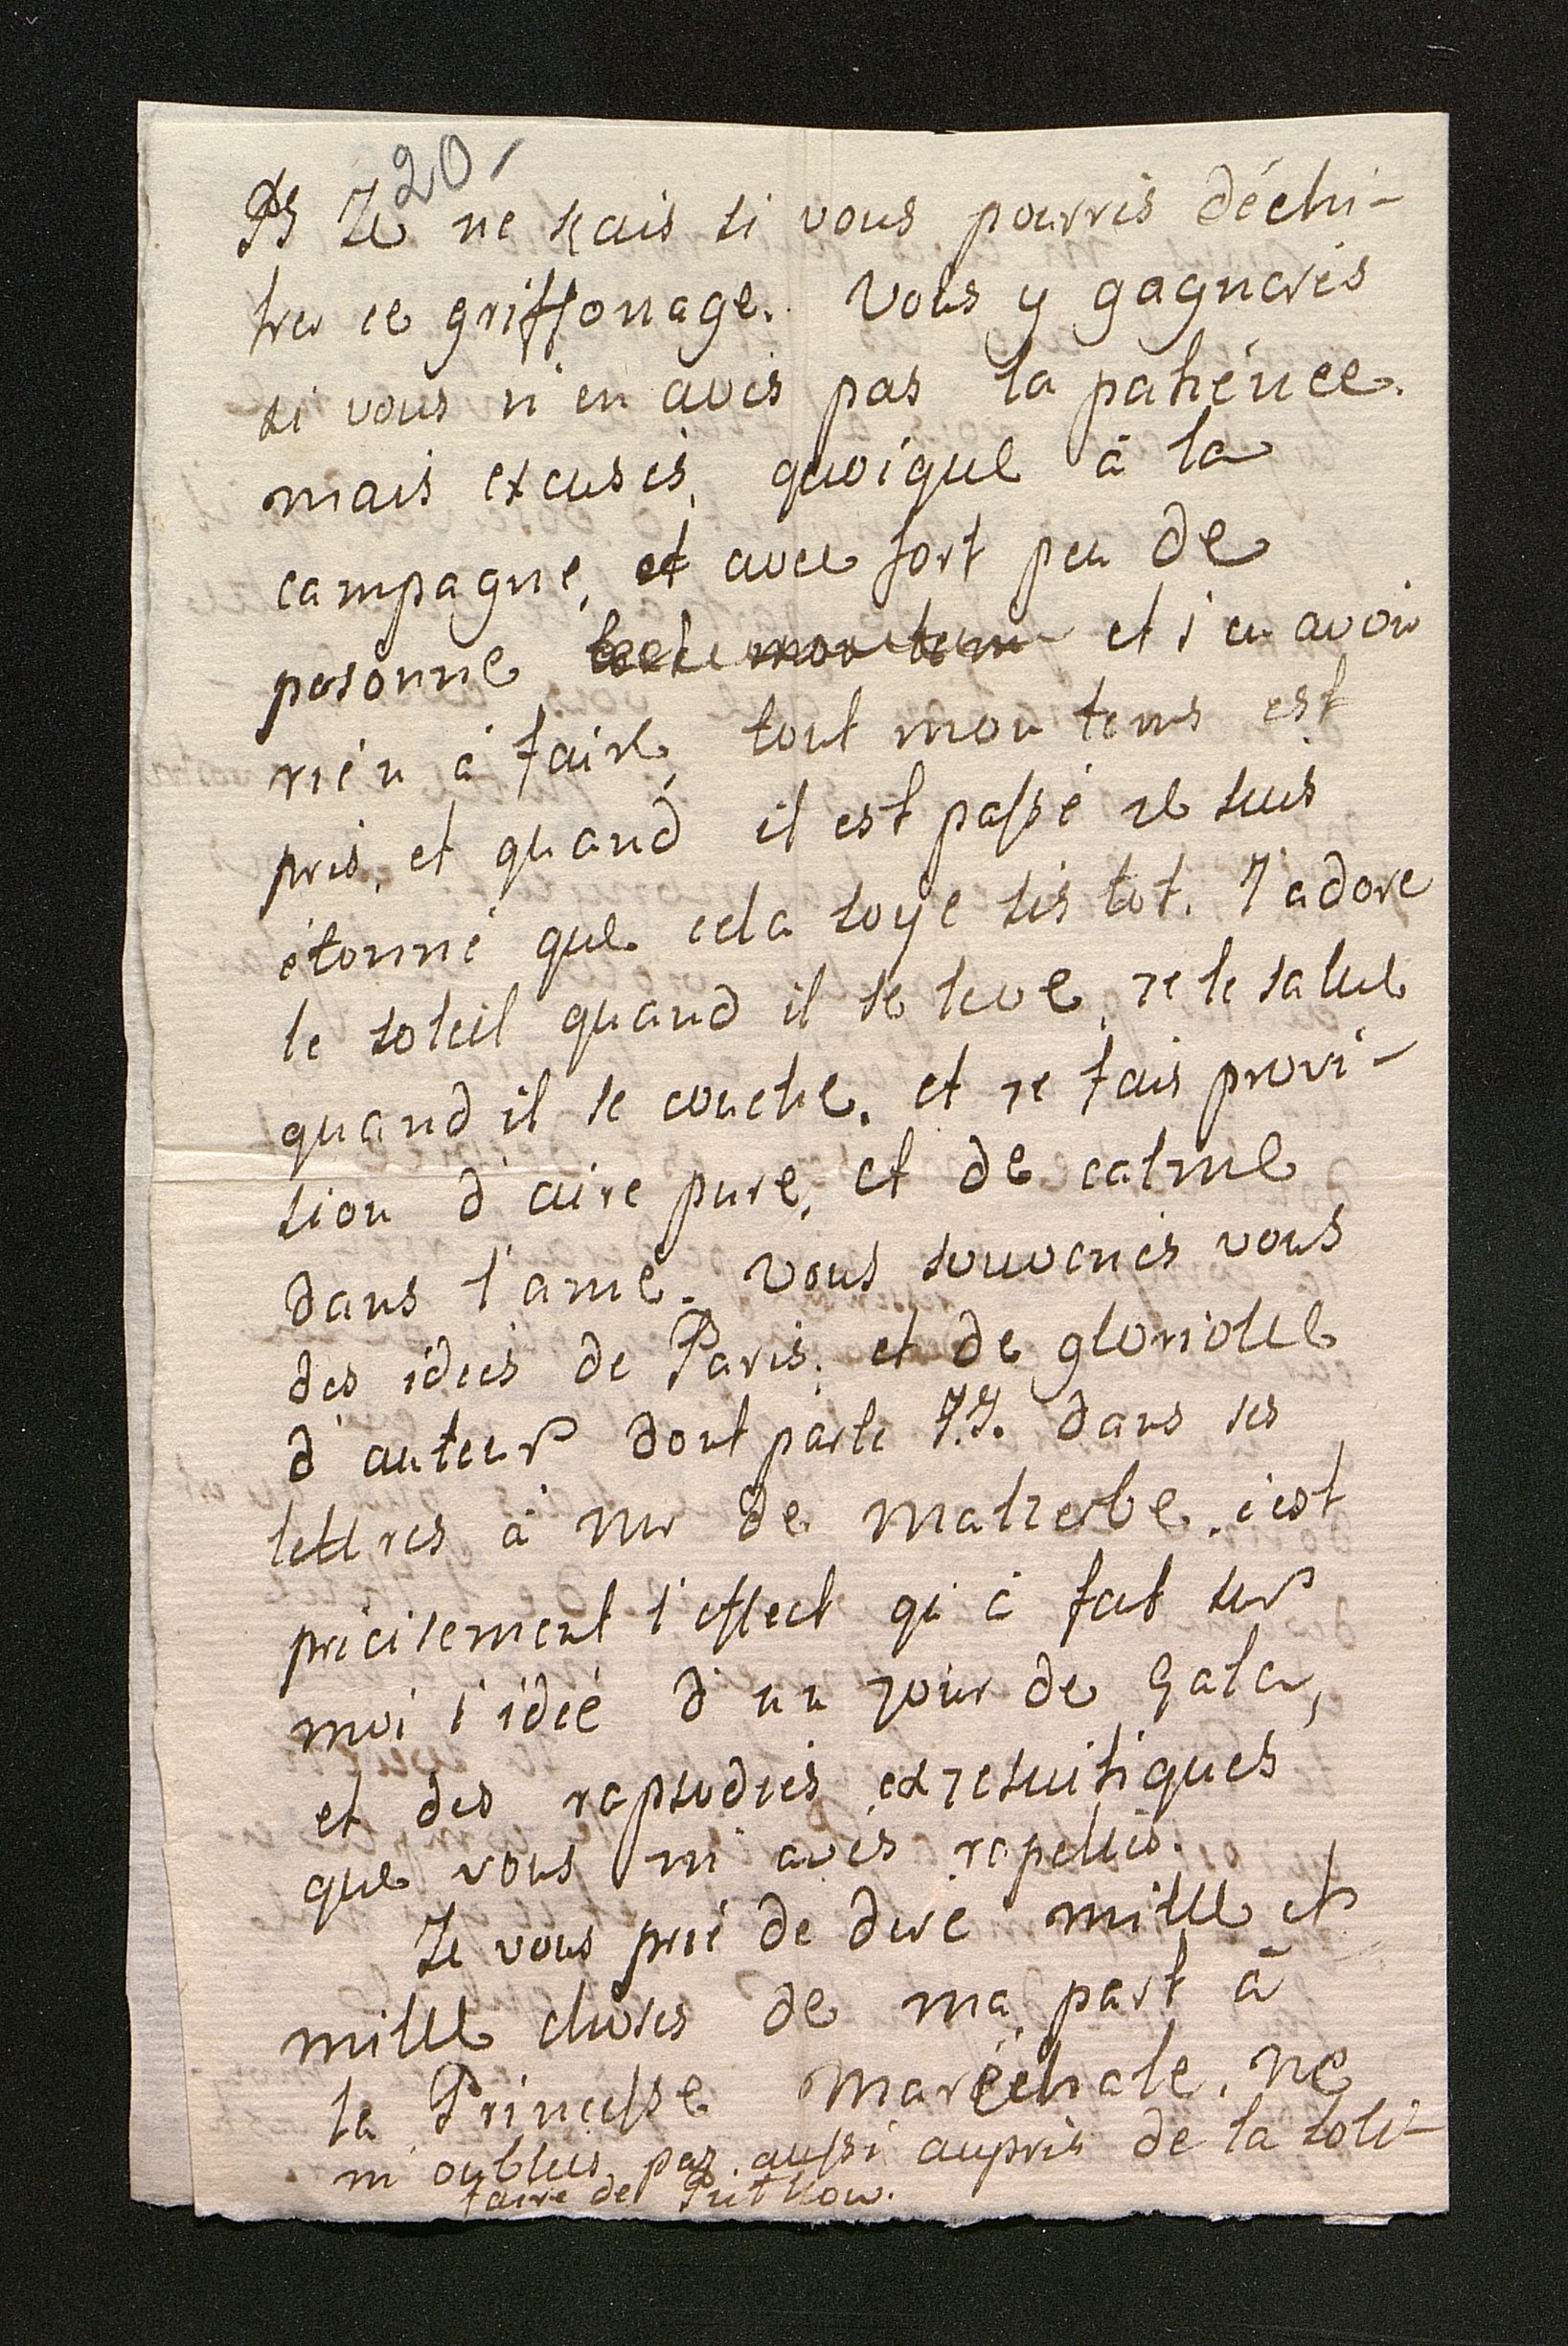 20-
PS Je ne sçais si vous pourris déchi-
frer ce griffonage. Vous y gagnerés
si vous n'en avés pas la patiénce.
mais excusés, quoique à la
campagne, et avec fort peu de
personne et s'en avoir
rién à faire, tout mon tems est
pris, et quand il est passé je suis
étonné que cela soye sis tot. J'adore
le soleil quand il se leve, je le salue
quand il se couche. et je fais provi-
sion d'aire pure, et de calme
dans l'ame. Vous souvenés vous
des idees de Paris, et de gloriole
d'auteur dont parle J.J. dans ses
lettres à Mr de Malzerbe. c'est
précisement l'effect qi à fait sur
moi l'idée d'un jour de Gala,
et des rapsodies exjesuitiques
que vous m'avés rapellés.
Je vous prié de dire mille et
mille choses de ma part à
la Princesse Maréchale. ne
m'oubliés pas aussi auprés de la soli-
taire de Putkow.